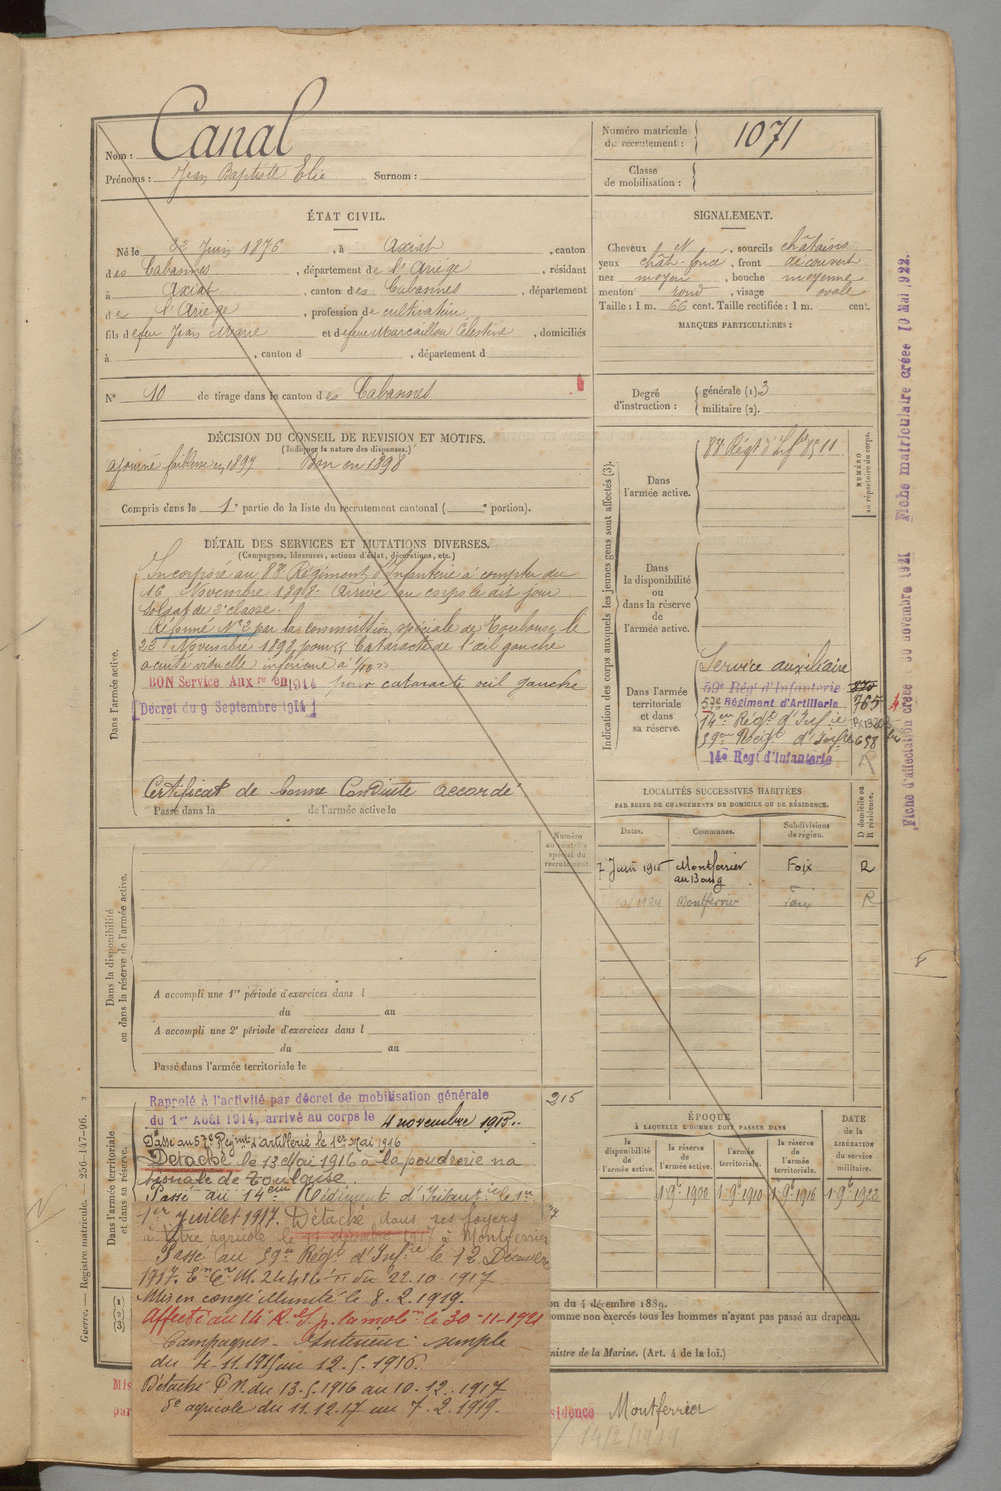 Nom : Canal
Prénoms : Jean Baptiste Elie Surnom :
Numéro matricule du recrutement : 1071
Classe de mobilisation :
ÉTAT CIVIL.
Né le 22 Juin 1876, à Axiat, canton
des Cabannes, département de l'Ariège, résidant
à Axiat, canton des Cabannes, département
de l'Ariège, profession de cultivateur
fils de feu Jean Marie et de feue Marcaillou Célestine, domiciliés
à , canton d , département d
N° 10 de tirage dans le canton des Cabannes
SIGNALEMENT.
Cheveux N, sourcils châtains
yeux chât-foncé, front découvert
nez moyen, bouche moyenne
menton rond, visage ovale
Taille : 1 m. 66 cent. Taille rectifiée : 1 m. cent.
MARQUES PARTICULIÈRES :
Degré d'instruction : générale (1) 3
militaire (2).
DÉCISION DU CONSEIL DE REVISION ET MOTIFS.
(Indiquer la nature des dispenses.)
ajourné faiblesse en 1897 Bon en 1898
Compris dans la 1e partie de la liste du recrutement cantonal ( e portion).
DÉTAIL DES SERVICES ET MUTATIONS DIVERSES.
(Campagnes, blessures, actions d'éclat, décorations, etc.)
Dans l'armée active.
Incorporé au 88e Régiment d'Infanterie à compter du
16 Novembre 1898. Arrivé au corps le dit jour
soldat de 2e classe.
Réformé N° 2 par la commission spéciale de Toulouse le
23 Novembre 1898 pour "Cataracte de l'œil gauche
acuité visuelle inférieure à 1/10"
BON Service Auxre en 1914 pour cataracte œil gauche
Décret du 9 Septembre 1914
Certificat de bonne Conduite accordé
Passé dans la de l'armée active le
Indication des corps auxquels les jeunes gens sont affectés (3).
NUMÉRO au répertoire du corps.
Dans l'armée active.
88e Régt d'Infrie 8511
Dans la disponibilité ou dans la réserve de l'armée active.
Dans l'armée territoriale et dans sa réserve.
Service auxiliaire
59e Régt d'Infanterie
57e Régiment d'Artillerie 765
14em Régt d'Infrie
59em Régt d'Infrie 658
14e Regt d'Infanterie R
LOCALITÉS SUCCESSIVES HABITÉES
PAR SUITE DE CHANGEMENTS DE DOMICILE OU DE RÉSIDENCE.
Dates. Communes. Subdivisions de région. D domicile ou R résidence.
7 Juin 1915 Montferrier au Bourg Foix R
Montferrier Foix R
Numéro au contrôle spécial du recrutement.
Dans la disponibilité ou dans la réserve de l'armée active.
A accompli une 1re période d'exercices dans l
du au
A accompli une 2e période d'exercices dans l
du au
Passé dans l'armée territoriale le
Dans l'armée territoriale et dans sa réserve.
Rappelé à l'activité par décret de mobilisation générale
du 1er Août 1914, arrivé au corps le 4 novembre 1915. 215
Passé au 57e Régimt d'artillerie le 1er Mai 1916
Détaché le 13 Mai 1916 à la poudrerie na
tionale de Toulouse.
Passé au 14em Régiment d'Infantie le 1er
1er Juillet 1917. Détaché dans ses foyers
à titre agricole le 11 décembre 1917 à Montferrier
Passé au 59em Régt d'Infrie le 12 Décembre
1917.
Mis en congé illimité le 8.2.1919.
Affecté au 14e R.I. p. la mobon le 30-11-1921
Campagnes - Intérieur : simple
du 4-11-1915 au 12.5.1916.
Détaché P.N. du 13.5.1916 au 10.12.1917
de agricole du 11.12.17 au 7.2.1919.
ÉPOQUE
À LAQUELLE L'HOMME DOIT PASSER DANS
la disponibilité de l'armée active.
la réserve de l'armée active.
l'armée territoriale.
la réserve de l'armée territoriale.
DATE de la LIBÉRATION du service militaire.
1-9e 1900 1-9e 1910 1-9e 1916 1-9e 1922
on du 4 décembre 1889.
omme non exercés tous les hommes n'ayant pas passé au drapeau.
nistre de la Marine. (Art. 4 de la loi.)
Mis
par
sidence Montferrier
14/2/1919
Guerre. — Registre matricule. — 256-147-96.
Fiche d'affectation créée 30 novembre 1921
Fiche matriculaire créée 10 Mai 1922.